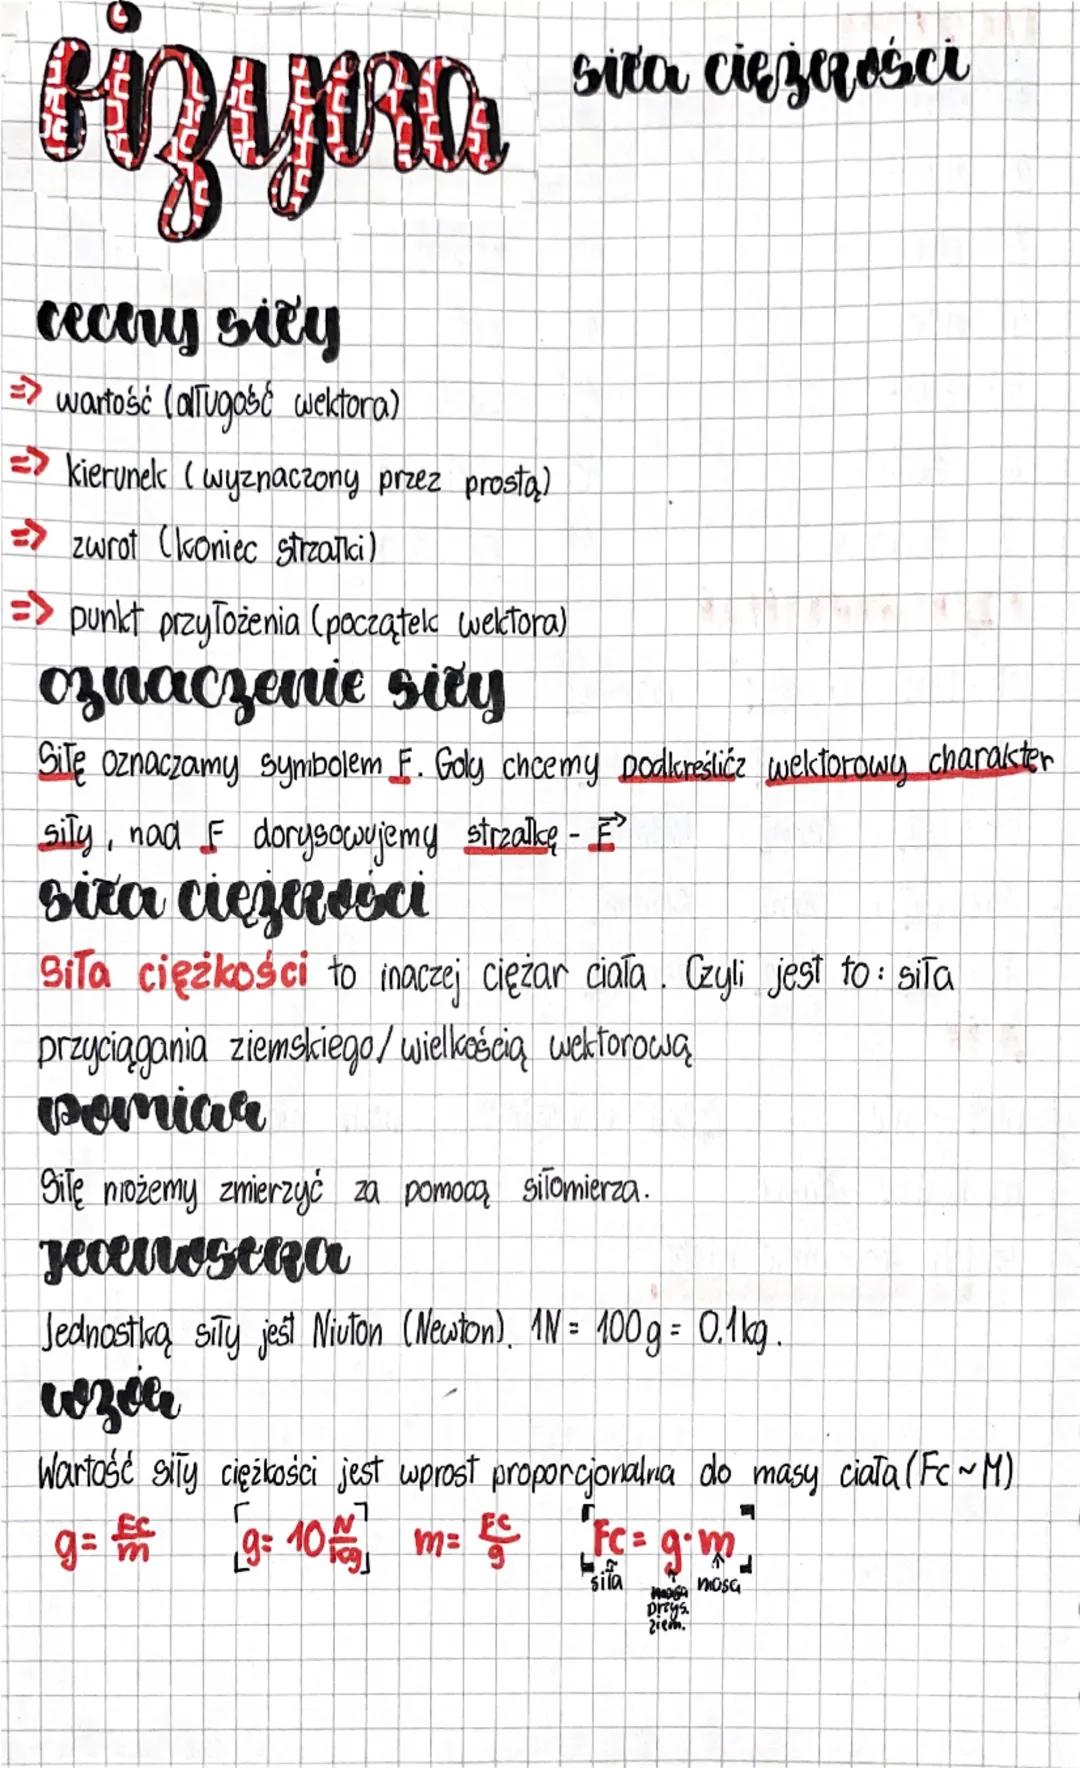 fizyka
siła ciężkości
cechy siły
=> wartość (długość wektora)
=> kierunek (wyznaczony przez prostą)
=> zwrot (koniec strzałki)
=> punkt przyłożenia (początek wektora)
oznaczenie siły
Siłę oznaczamy symbolem F. Gdy chcemy podkreślić wektorowy charakter
siły, nad F dorysowujemy strzałkę - F→
siła ciężkości
Siła ciężkości to inaczej ciężar ciała. Czyli jest to: siła
przyciągania ziemskiego/wielkością wektorową
pomiar
Siłę możemy zmierzyć za pomocą siłomierza.
jednostka
Jednostką siły jest Niuton (Newton). 1N = 100g = 0.1kg.
wzór
Wartość siły ciężkości jest wprost proporcjonalna do masy ciała (Fc ~ M)
g = Fc/m [g = 10 N/kg] m = Fc/g [Fc = g·m]
siła masa
przys.
ziem.